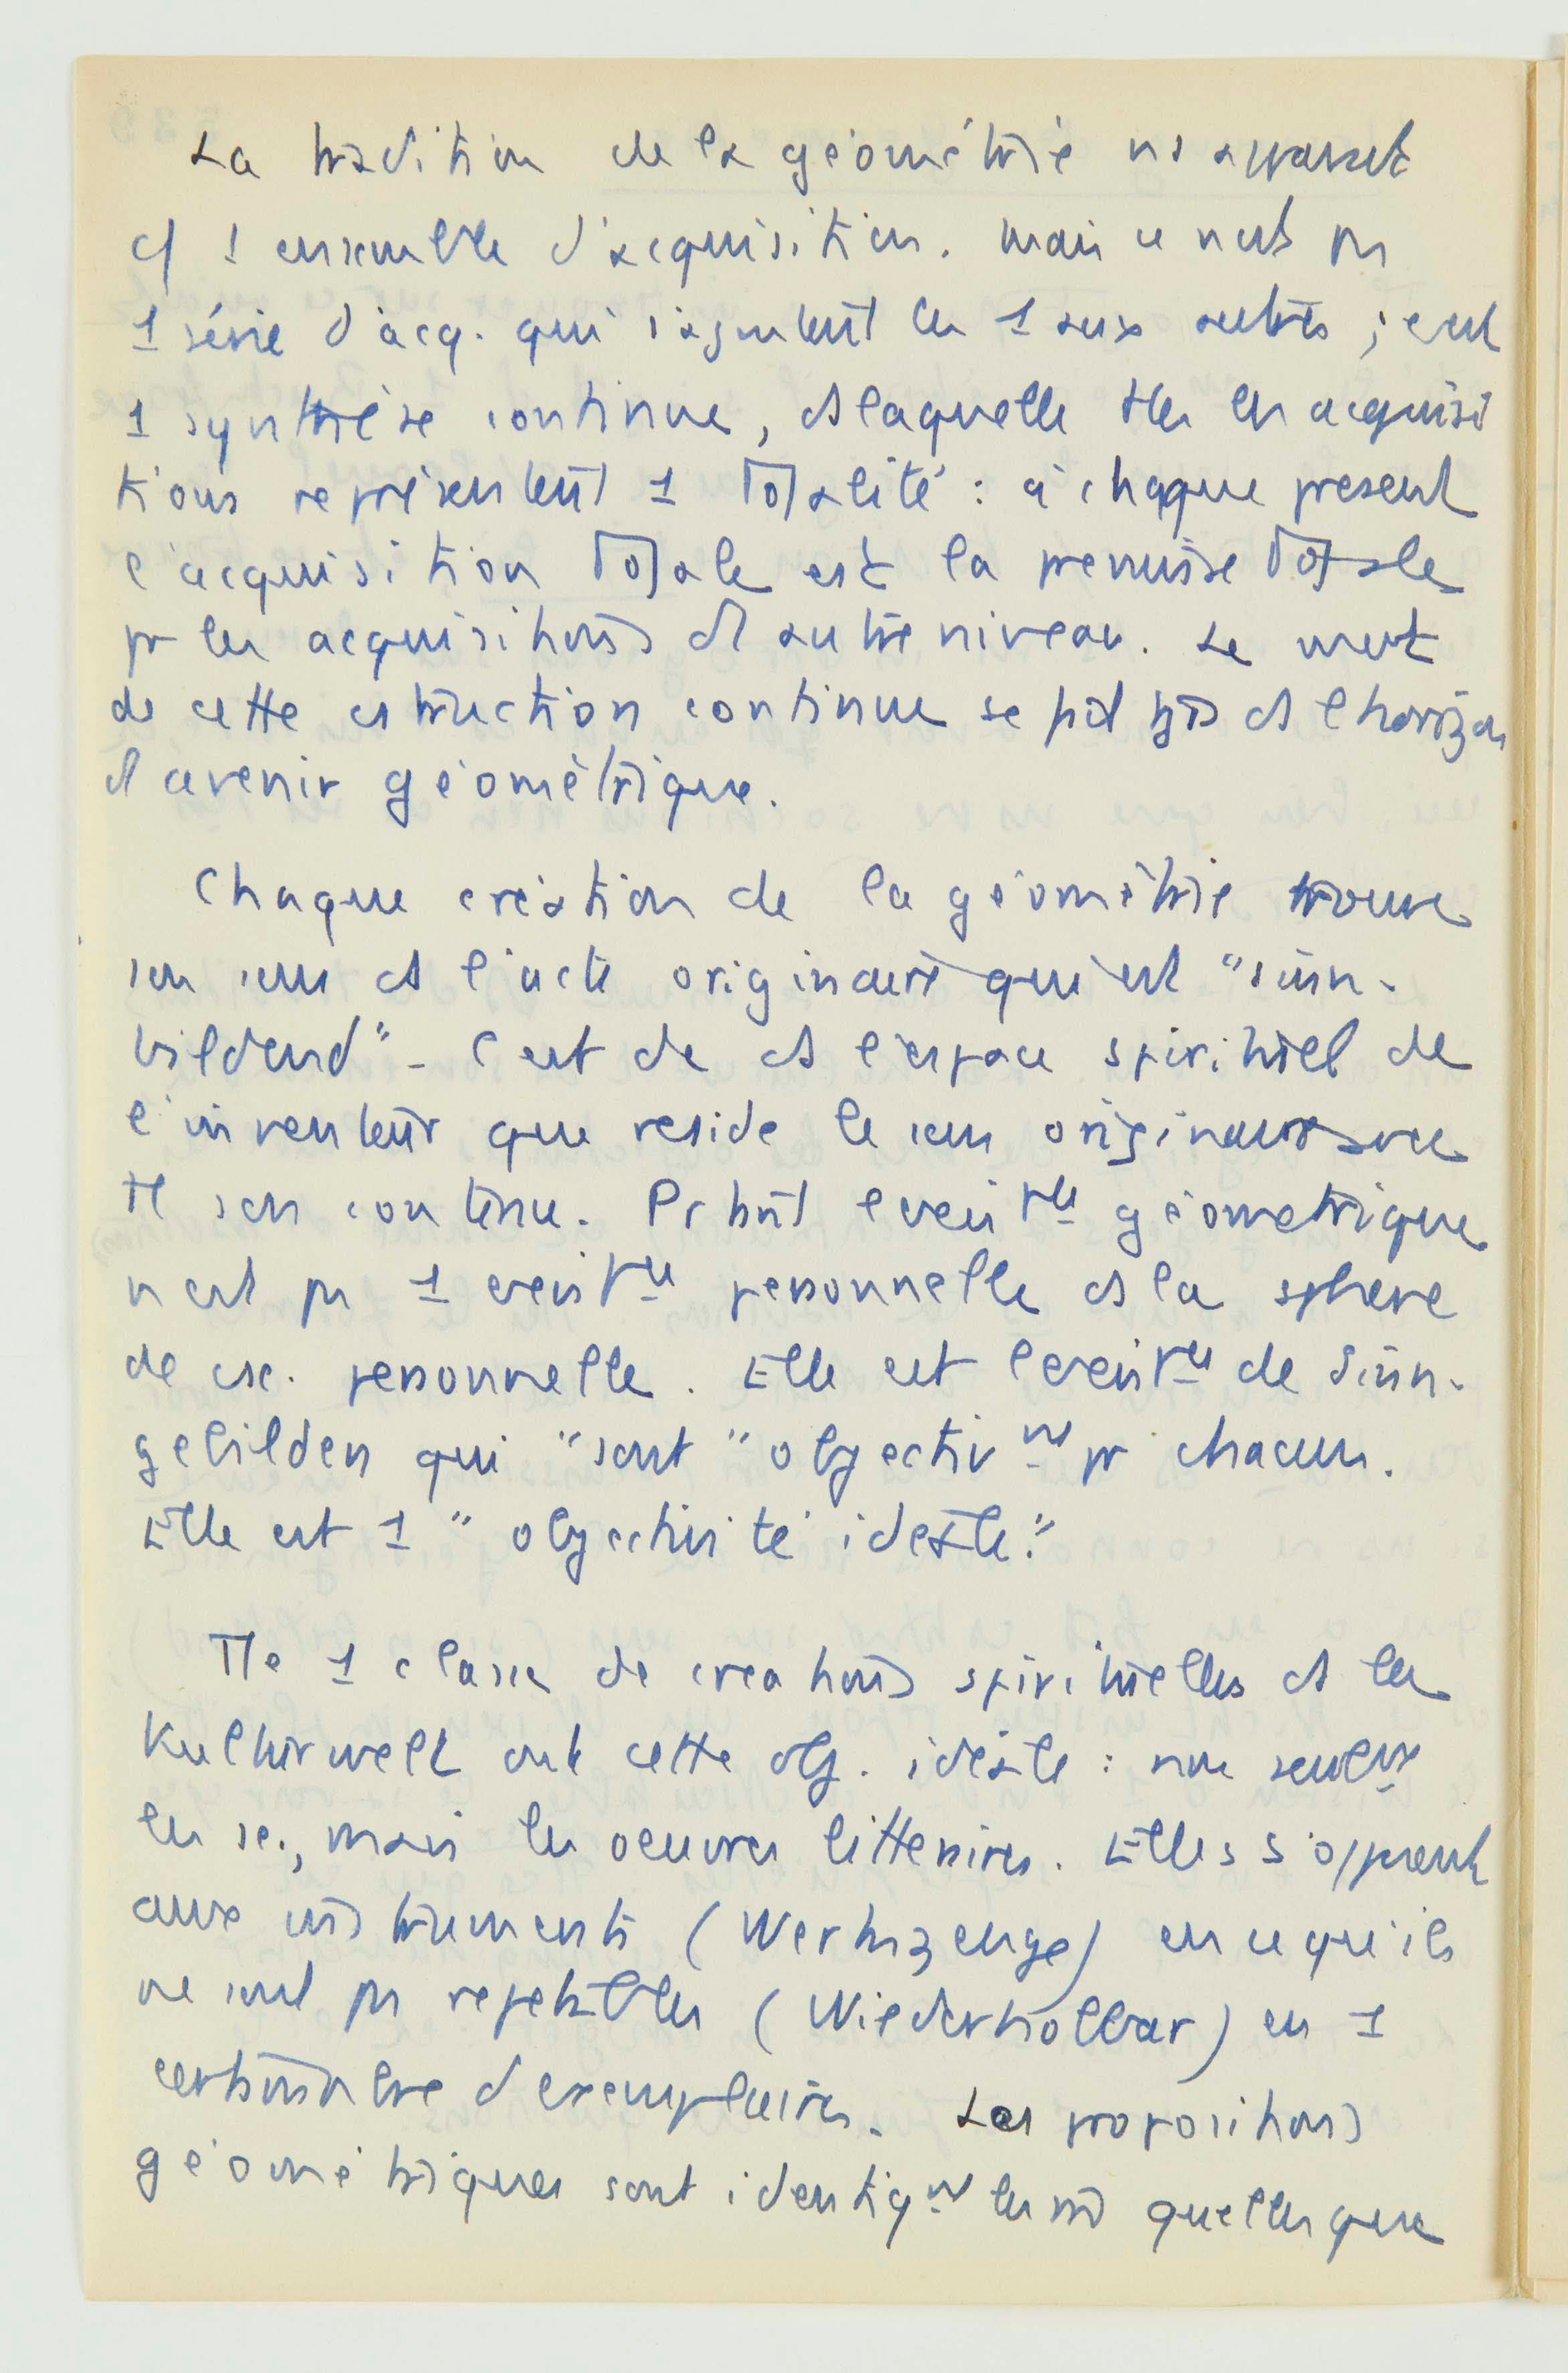 La tradition de la géométrie ns apparaît
c/ 1 ensemble d'acquisition. Mais ce n'est pas
1 série d'acq. qui s'ajoutent les 1 aux autres ; c'est
1 synthèse continue, ds laquelle ttes les acquisi
tions représentent 1 totalité : à chaque present
l'acquisition totale est la premisse totale
pr les acquisitions d'1 autre niveau. Le mvt
de cette cstruction continue se fait tjrs ds l'horizon
d'avenir géométrique.
Chaque création de la géométrie trouve
son sens ds l'acte originaire qui est "sinn-
bildend" - C'est dc ds l'espace spirituel de
l'inventeur que reside le sens originaire avec
tt son contenu. Pourtant l'existce géometrique
n'est pas 1 existce personnelle ds la sphere
de csc. personnelle. Elle est l'existce de Sinn-
gebilden qui "sont" objectivnt pr chacun.
Elle est 1 "objectivité idéale."
Tte 1 classe de creations spirituelles ds la
Kulturwelt ont cette obj. idéale : non seulemt
les sc., mais les oeuvres litteraires. Elles s'opposent
aux instruments (Werkzeuge) en ce qu'ils
ne sont pas repetables (Wiederholbar) en 1
certain nbre d'exemplaires. Les propositions
géométriques sont identiqnt les ms quelles que